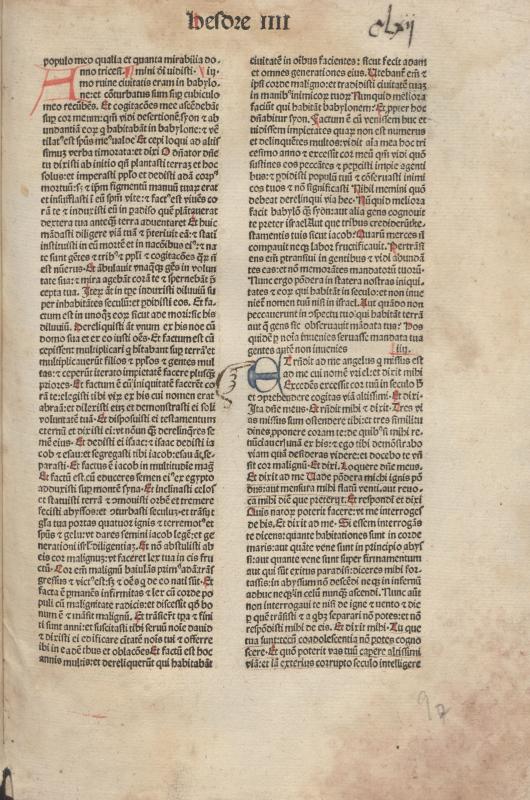 hesdre IIII
clxij
populo meo qualia et quanta mirabilia do-
Anno tricesi mini dei vidisti. iij.
mo ruine ciuitatis eram in babylo-
ne: et cōturbatus sum sup cubiculo
meo recūbēs. Et cogitacōes mee ascēdebāt
sup cor meum: qm̄ vidi desertionē syon et ab
undantiā eorꝝ q̄ habitabāt in babylone: et vē
tilatꝰ est spūs meꝰ valde Et cepi loqui ad altis
simū verba timorata: et dixi O dn̄ator dn̄e
tu dixisti ab initio qn̄ plantasti terrā et hoc
solus: et imperasti pplo et dedisti adā corpꝰ
mortuū: s; et ip̄m figmentū manuū tuarꝝ erat
et insufflasti ī eū spm̄ vite: et factꝰ est viuēs co
rā te et induxisti eū in padiso quē plātauerat
dextera tua anteq̄ terra aduentaret Et huic
mādasti diligere viā tuā et p̄teriuit eā: et stati
instituisti in eū mortē et in nacōibus eiꝰ: et na
te sunt gētes et tribꝰ et ppli et cogitacōes quarꝝ nō
est nūerus. Et ābulauit vnaq̄q̄ gēs in volun
tate sua: et mira agebāt corā te et spernebāt p̄
cepta tua. Iteꝝ āt in tpe induxisti diluuiū su
per inhabitātes seculū: et pdidisti eos. Et fa-
ctum est in vnoq̄ eorꝝ sicut ade mori: sic his
diluuiū. Dereliquisti āt vnum ex his noe cū
domo sua et ex eo iusti oēs. Et factum est cū
cepissent multiplicari q̄ hitabant sup terrā et
multiplicauerūt filios et pplos et gentes mul
tas: et ceperūt iterato impietatē facere plusq̄
priores. Et factum ē cū iniquitatē facerēt co
rā te: elegisti tibi virꝝ ex his cui nomen erat
abraā: et dilexisti eū et demonstrasti ei soli
voluntatē tuā. Et disposuisti ei testamentum
eternū et dixisti ei: vt nōnunq̄ derelinq̄res se
mē eius. Et dedisti ei isaac: et isaac dedisti ia
cob et esau: et segregasti tibi iacob: esau āt se-
parasti. Et factus ē iacob in multitudīe maḡ
Et factū est: cū educeres semen eiꝰ ex egypto
adduxisti sup montē syna. Et inclinasti celos
et statuisti terrā et cōmouisti orbē et tremere
fecisti abyssos: et cōturbasti seculū: et trāsijt
gl̄a tua portas quatuor ignis et terremotꝰ et
spūs et gelu: vt dares semini iacob legē: et ge
nerationi isrl̄ diligentiā. Et nō abstulisti ab
eis cor malignū: vt faceret lex tua in eis fru
ctū. Cor em̄ malignū baiulās primꝰ adā trās
gressus et victꝰ est: s; et oēs q̄ de eo nati sūt. Et
facta ē pmanēs infirmitas et lex cū corde po
puli cū malignitate radicis: et discessit qd̄ bo
num ē et māsit malignū. Et trāsierūt tpa et fini
ti sunt anni: et suscitasti tibi seruū noīe dauid
et dixisti ei edificare ciuitatē noīs tui et offerre
ibi in ea dē thus et oblacōes Et factū est hoc
annis multis: et dereliquerūt qui habitabāt
ciuitatē in oībus facientes: sicut fecit adam
et omnes generationes eius. Utebant̄ em̄ et
ipsi corde maligno: et tradidisti ciuitatē tuā
in manibꝰ inimicoꝝ tuoꝝ Nunquid meliora
faciūt qui habitāt babylonem: Et ppter hoc
dn̄abitur syon. Factum ē cū venissem huc et
vidissem impietates quarꝝ non est numerus
et delinquētes multos: vidit aīa mea hoc tri
cesimo anno et excessit cor meū qm̄ vidi quō
sustines eos peccātes et pepcisti impie agenti
bus: et pdidisti populū tuū et cōseruasti inimi
cos tuos et nō significasti Nihil memini quō
debeat derelinqui via hec. Nūquid meliora
facit babylō q̄ syon: aut alia gens cognouit
te preter israel: aut que tribus crediderūt te-
stamentis tuis sicut iacob: Quarū merces nō
comparuit neq̄ labor fructificauit. Pertrāsi
ens em̄ ptransiui in gentibus et vidi abundā
tes eas: et nō memorātes mandatorū tuorū.
Nunc ergo pōdera in statera nostras iniqui-
tates et eorꝝ qui habitāt in seculo: et non inue
niet̄ nomen tuū nisi in israel. Aut quādo non
peccauerunt in cōspectu tuo: qui habitāt terrā
aut q̄ gens sic obseruauit mādata tua: Hos
quidē p noīa inuenies seruasse mandata tua
gentes autē non inuenies iiij.
Et rn̄dit ad me angelus q̄ missus est
ad me cui nomē vriel: et dixit mihi
Excedēs excessit cor tuū in seculo h̄
et cōprehendere cogitas viā altissimi. Et dixi.
Ita dn̄e meus. Et rn̄dit mihi et dixit. Tres vi
as missus sum ostendere tibi: et tres similitu
dines pponere coram te: de quibꝰ si mihi re-
nūciaueris vnā ex his: et ego tibi demōstrabo
viam quā desideras videre: et docebo te vn̄
sit cor malignū. Et dixi. Loquere dn̄e meus.
Et dixit ad me Uade pōdera michi ignis pō
dus: aut mensura mihi flatū venti: aut reuo-
ca mihi diē que preterijt. Et respondi et dixi
Quis natoꝝ poterit facere: vt me interroges
de his. Et dixit ad me. Si essem interrogās
te dicens: quante habitationes sunt in corde
maris: aut quāte vene sunt in principio abys
si: aut quante vene sunt super firmamentum
aut qui sūt exitus paradisi: diceres mihi for-
tassis: in abyssum nō descēdi neq̄ in infernū
adhuc neq̄ in celū nunq̄ ascendi. Nunc aūt
non interrogaui te nisi de igne et vento et die
p quē trāsisti et a qbꝫ separari nō potes: et nō
respōdisti mihi de eis. Et dixit mihi. Tu que
tua sunt: tecū coadolescentia nō potes cogno
scere. Et quō poterit vas tuū capere altissimi
viā: et iā exterius corrupto seculo intelligere
92